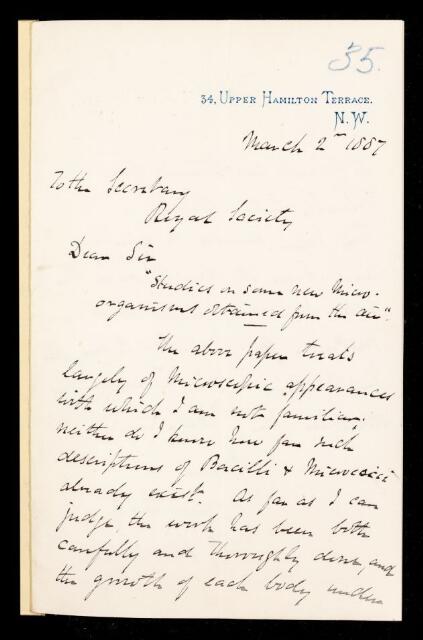 35.
34, Upper Hamilton Terrace.
N.W.
March 2nd 1887
To the Secretary
Royal Society
Dear Sir
"Studies on some new Micro-
organisms obtained from the air".
The above paper treats
largely of microscopic appearances
with which I am not familiar;
neither do I know how far such
descriptions of Bacilli & Micrococci
already exist. As far as I can
judge, the work has been both
carefully and thoroughly done, and
the growth of each body under